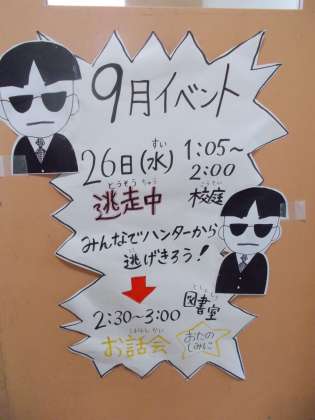 9月イベント
26日(水) 1:05〜2:00
すい
とうそうちゅう
逃走中
こうてい
校庭
みんなでハンターから
逃げきろう!
としょしつ
図書室
2:30〜3:00
おはなしかい
お話会
おたのしみに